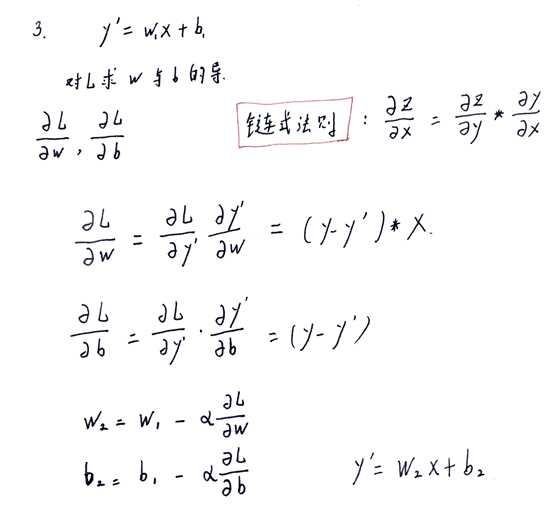 3. y' = w₁x + b₁
对L求 w 与 b 的导.
∂L/∂w , ∂L/∂b 链式法则 : ∂z/∂x = ∂z/∂y * ∂y/∂x
∂L/∂w = ∂L/∂y' ∂y'/∂w = (y-y') * x.
∂L/∂b = ∂L/∂y' · ∂y'/∂b = (y-y')
w₂ = w₁ - α ∂L/∂w
b₂ = b₁ - α ∂L/∂b y' = w₂x + b₂